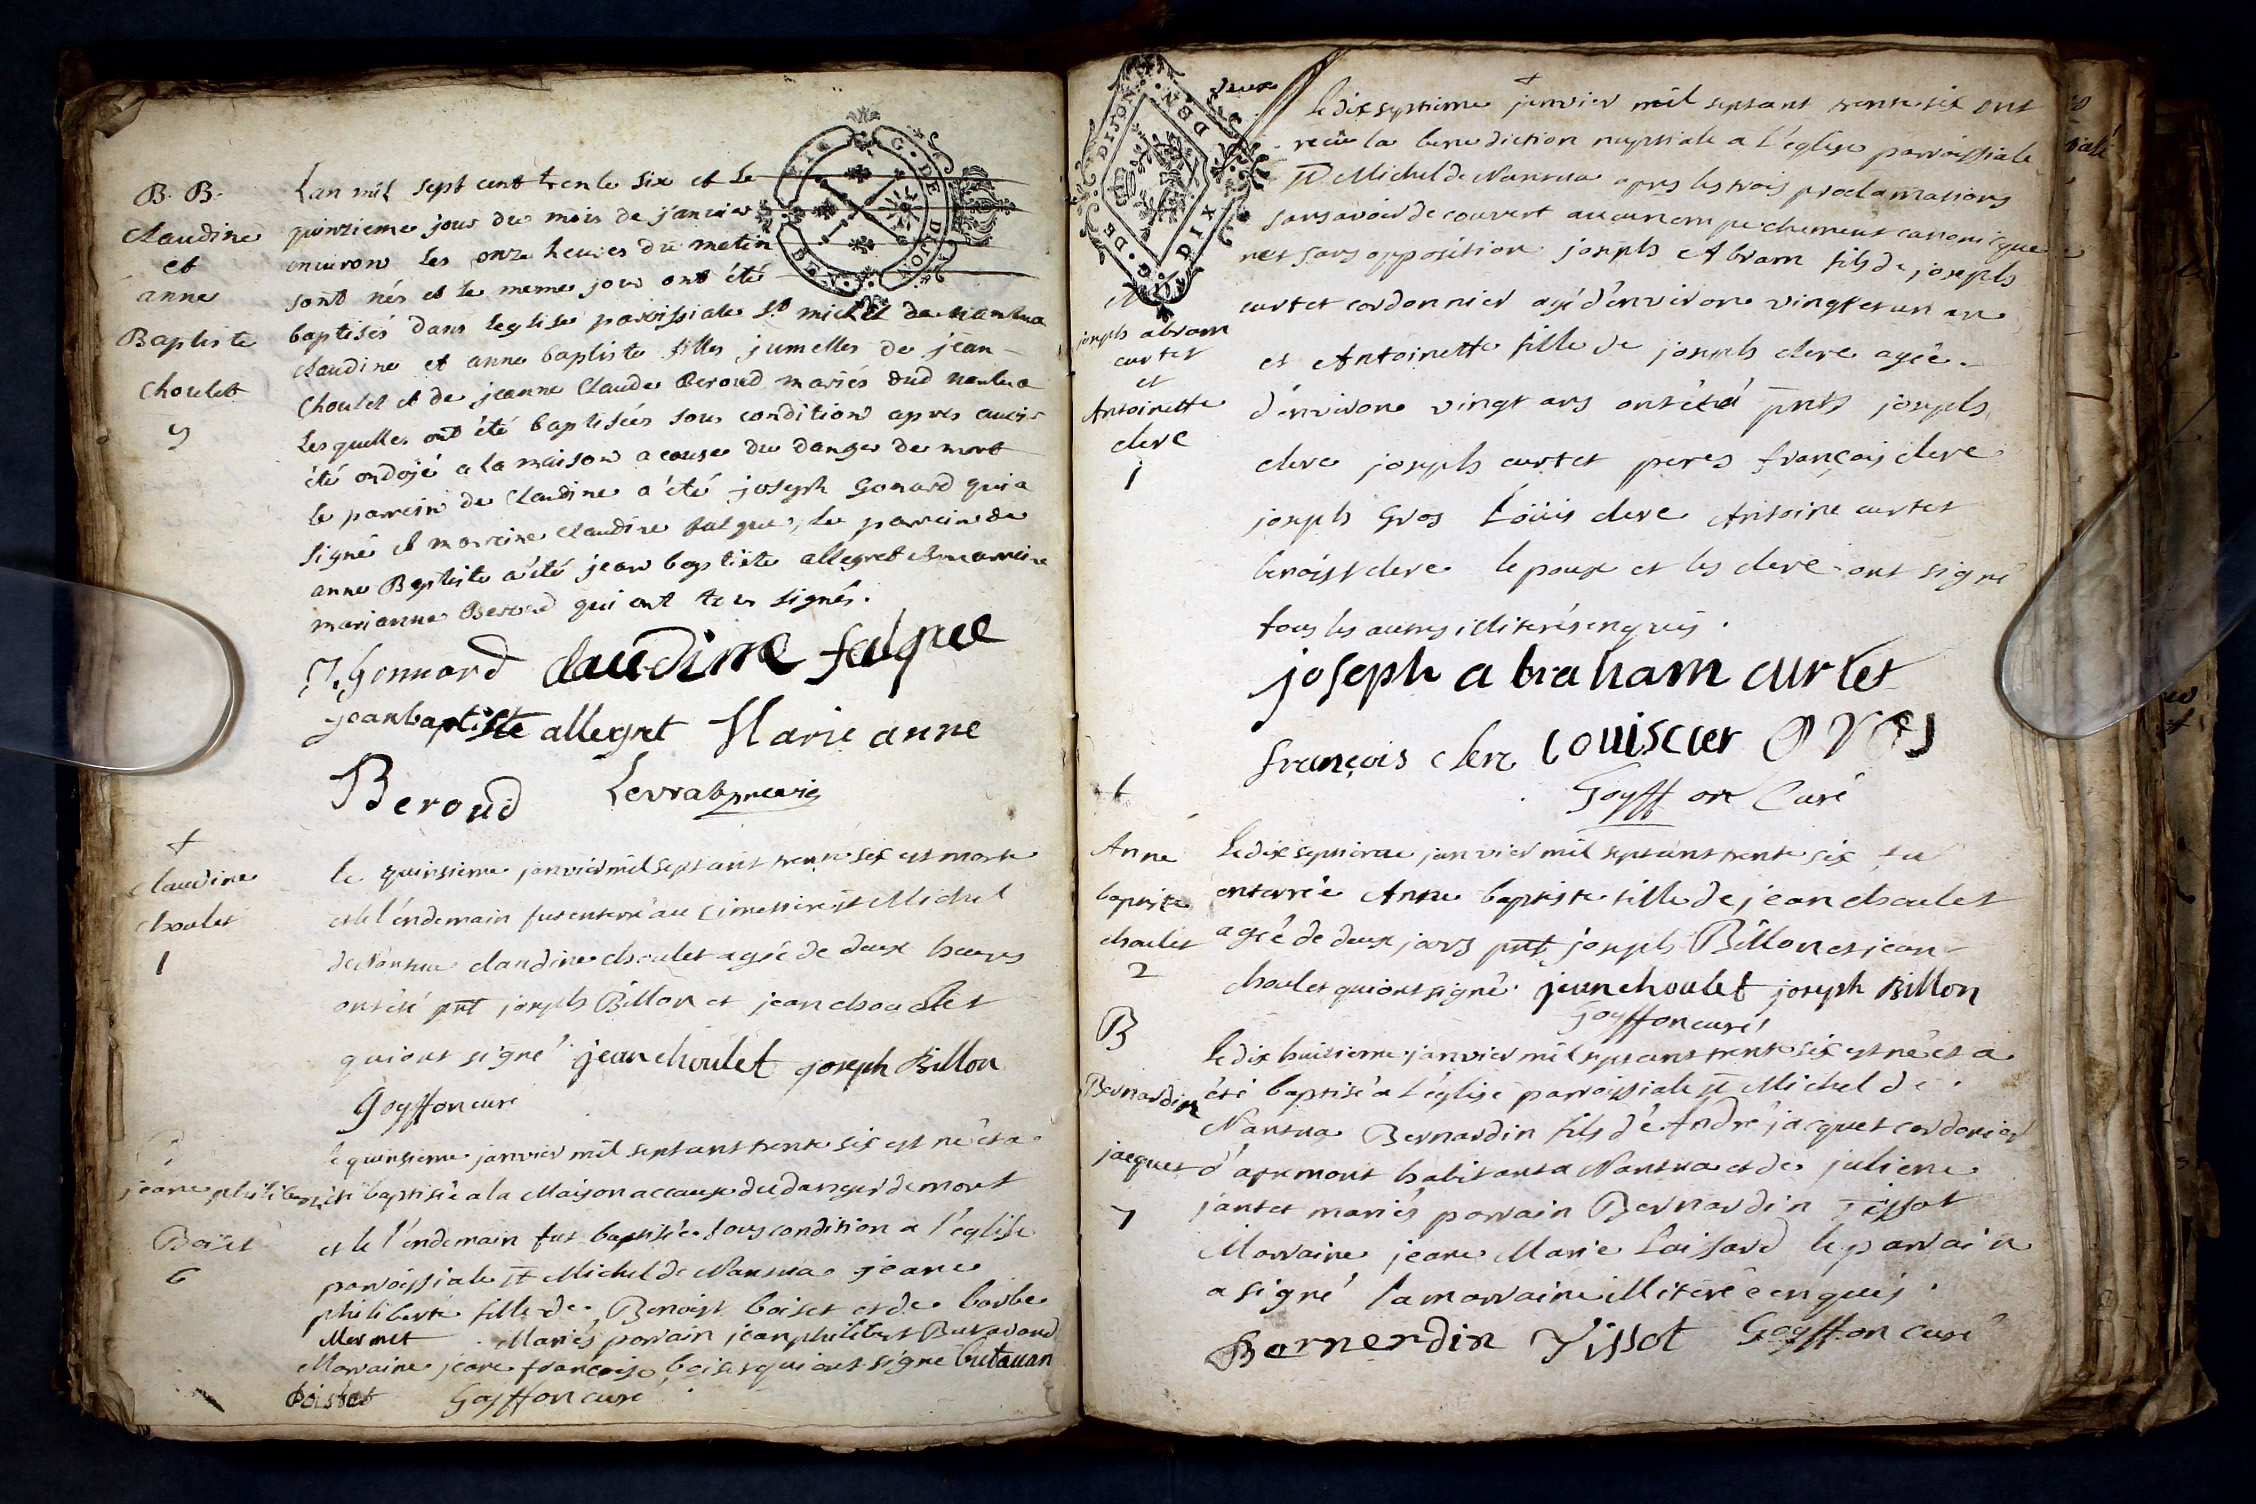 B. B.
claudine
et
anne
Baptiste
Choulet
5
Lan mil sept cent trente six et le
quinzieme jour du mois de janvier
environ les onze heures du matin
sont nés et le meme jour ont été
baptisés dans leglise paroissiale St michel de nantua
claudine et anne baptiste filles jumelles de jean
Choulet et de jeanne Claude Beroud mariés dud nantua
lesquelles ont été baptisées sous condition apres avoir
été ondojé a la maison a cause du danger de mort
le parrein de Claudine a été joseph Gonard qui a
signé et marreine claudine falque, le parrein de
anne Baptiste a été jean baptiste allegret et marreine
marianne Beroud qui ont tous signés.
J. Gonnard claudine falque
jean baptiste allegret Marie anne
Beroud Levrat
+
claudine
choulet
1
le quinsieme janvier mil sept cent trente six est morte
et le l'endemain fut enterré au Cimettire St Michel
de Nantua claudine choulet agée de deux heures
ont été pnt joseph Billon et jean choulet
qui ont signé jean choulet joseph Billon
Goyffon curé
jeane philiberte
Boiset
6
le quinsieme janvier mil sept cent trente six est né et a
été baptisée a la Maison accause du danger de mort
et le l'endemain fut baptisée sous condition a l'église
parroissiale St Michel de Nantua jeane
philiberte fille de Benoist boiset et de barbe
Mermet Mariés parrain jean philibert Butavand
Marraine jeane françoise boiset qui ont signé butauan
boisset Goyffon curé
deux
joseph abram
curtet
et
Antoinette
clerc
1
le dix septieme janvier mil sept cent trente six ont
recûe la benediction nuptiale a l'église parroissiale
St Michel de Nantua apres les trois proclamations
sans avoir decouvert aucun empechement canonique
net sans opposition joseph Abram fils de joseph
curtet cordonnier agé d'environ vingt et un an
et Antoinette fille de joseph clerc agée
d'environ vingt ans ont été pnts joseph
clerc joseph curtet peres françois clerc
joseph Gros Loüis clerc Antoine curtet
benoist clerc lepoux et les clerc ont signé
tous les autres illiterés enquis.
joseph abraham curtet
françois clerc Louis cler Gros
Goyffon Curé
+
Anne
baptiste
choulet
2
le dix septieme janvier mil sept cent trente six fut
enterrée Anne baptiste fille de jean choulet
agée de deux jours pnt joseph Billon et jean
choulet qui ont signé. jean choulet joseph Billon
Goyffon curé
B
Bernardin
jacquet
7
le dix huitieme janvier mil sept cent trente six est né et a
été baptisé a l'église parroissiale St Michel de
Nantua Bernardin fils d'é André jacquet cordonier
d'apremont habitant a Nantua et de juliene
jantet mariés parrain Bernardin Tissot
Marraine jeane Marie Loissard le parrain
a signé la marraine illiterée enquis.
Bernerdin Tissot Goyffon curé